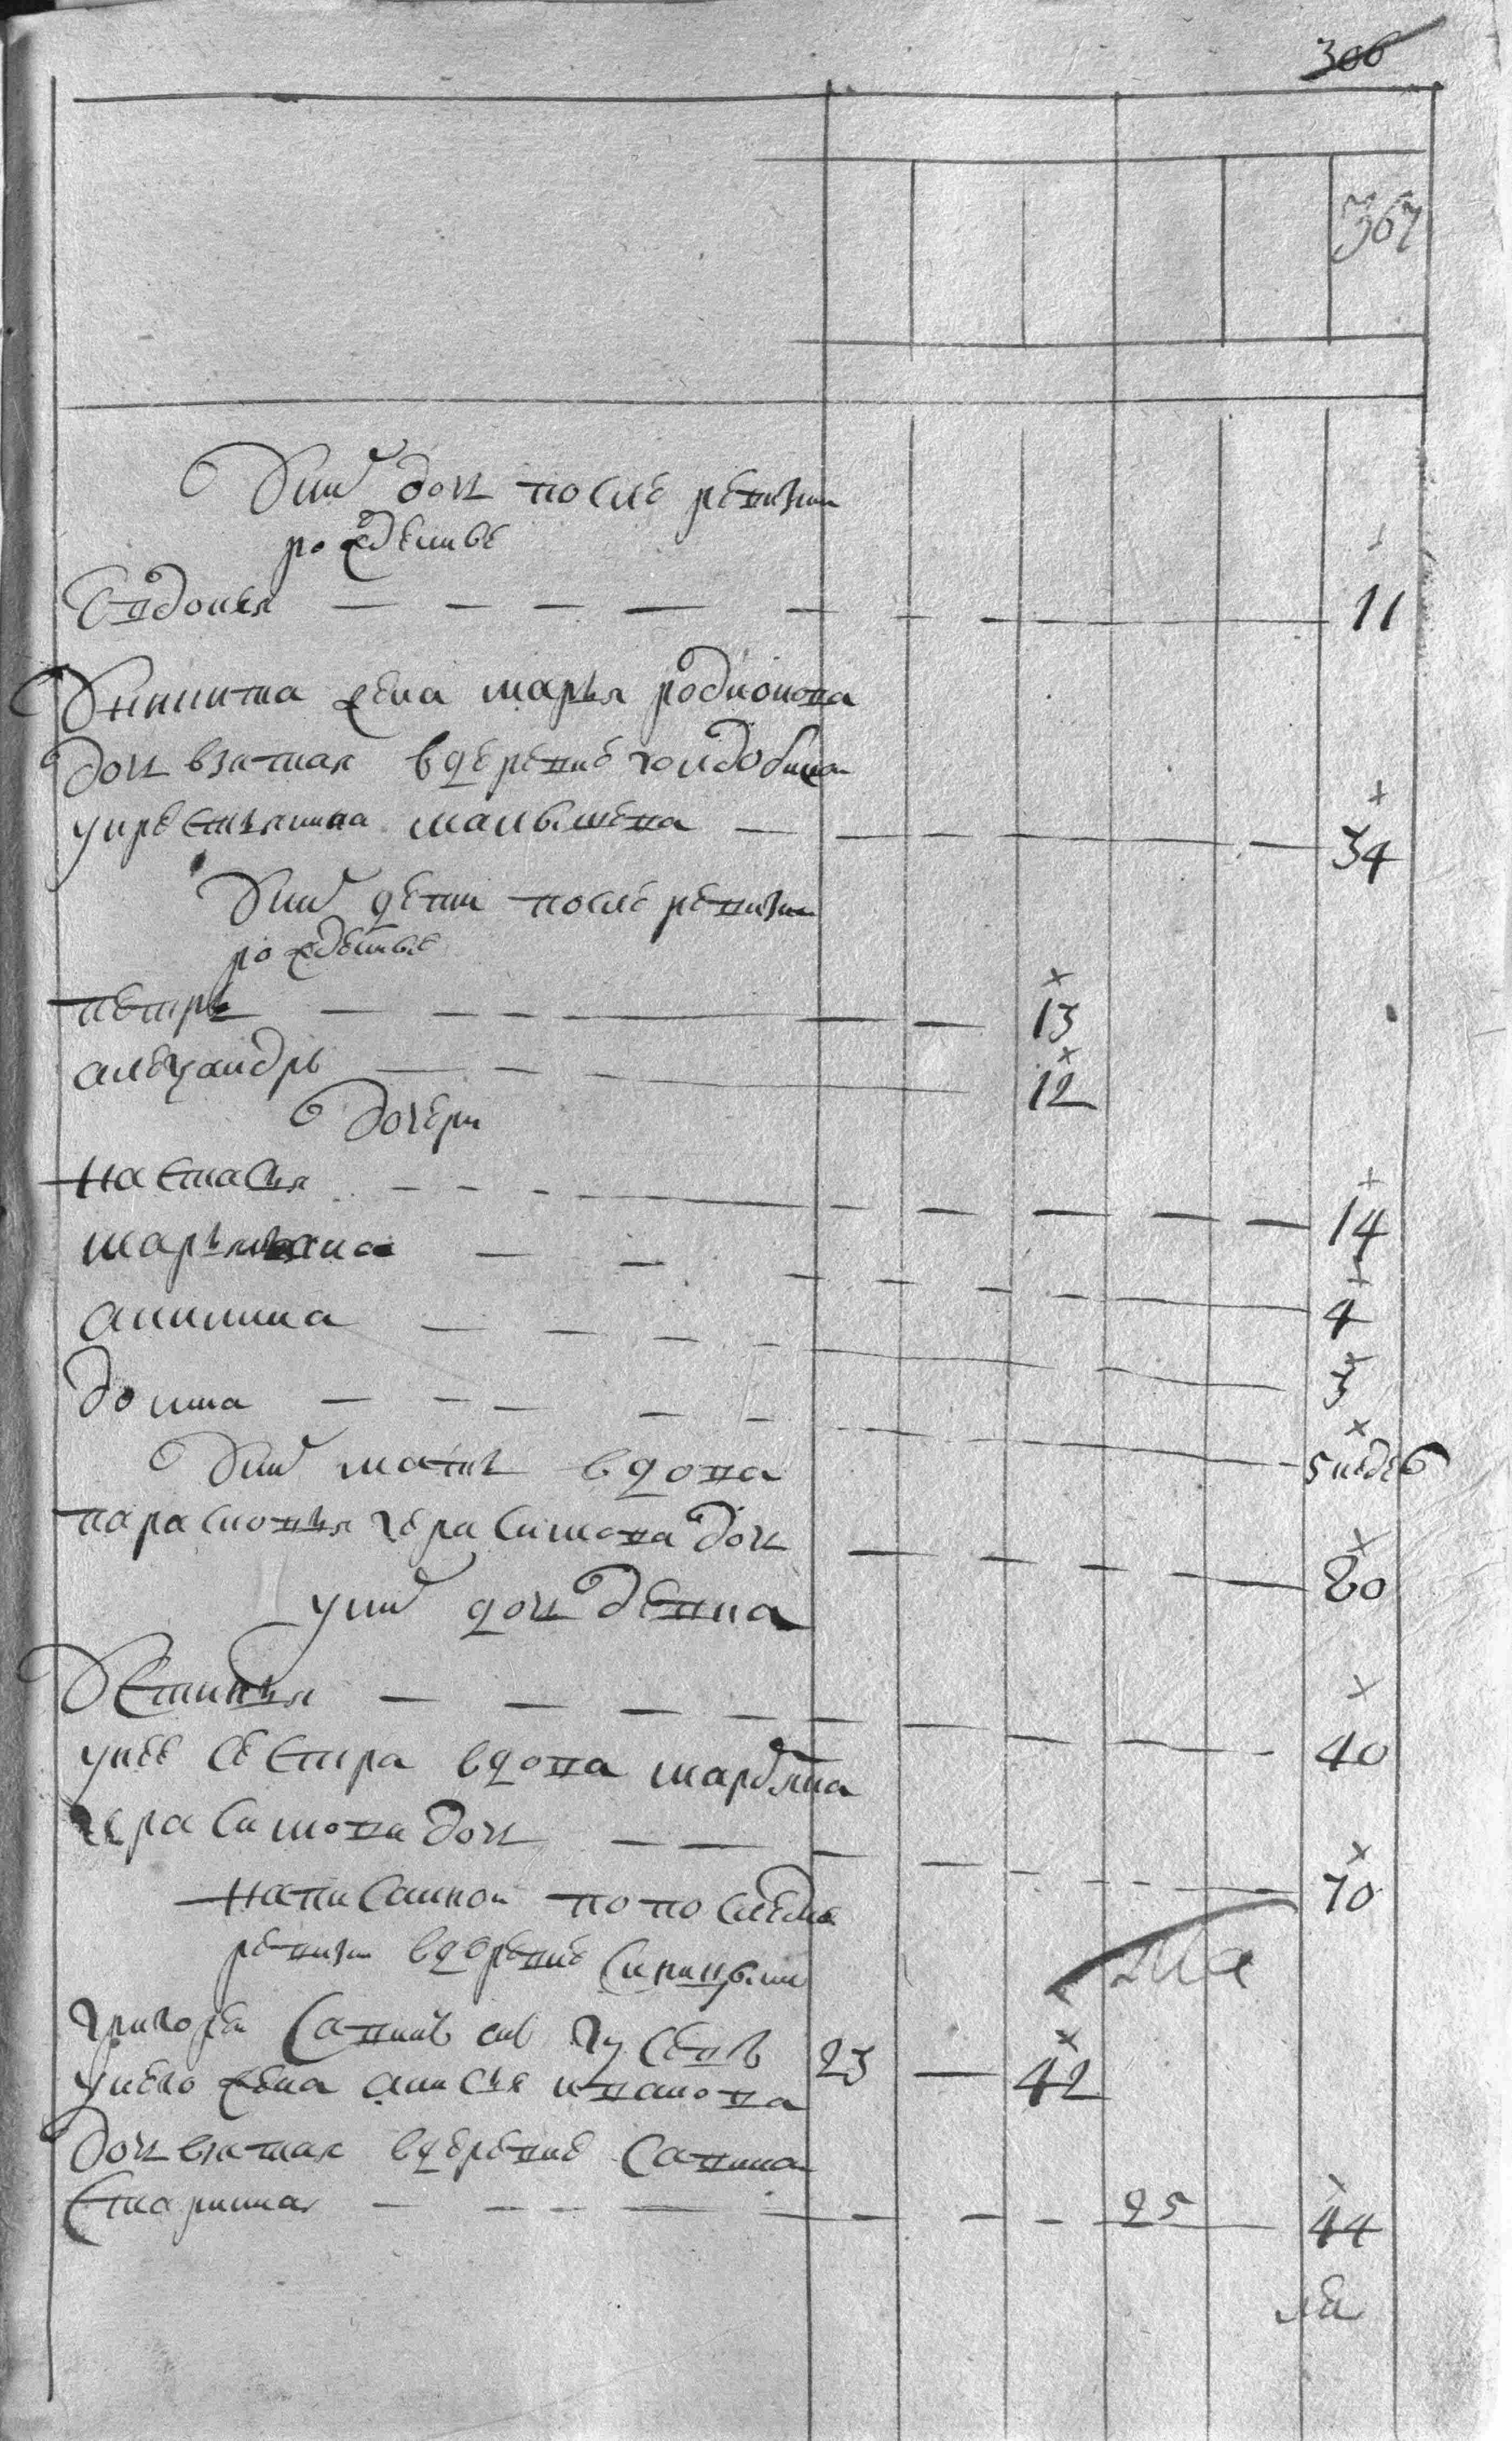 306
367
У них дочь после ревизии
рожденные
Евдокья 11
У никиты жена марья родионова
дочь взятая в деревне
у крестьянина малышева 34
У них дети после ревизии
рожденные
петръ 13
александръ 12
дочери
настасья 14
марьяна 4
анна 3
домна 5 недел
У них мать вдова
парасковья герасимова дочь 80
у них дочь девка
Устинья 40
у нее сестра вдова марьяна
герасимова дочь 70
написанной по последне
ревизии в деревне
григорей савинъ снъ гусевъ 23 42
у него жена анисья иванова
дочь взятая в деревне савина
старинная 25 44